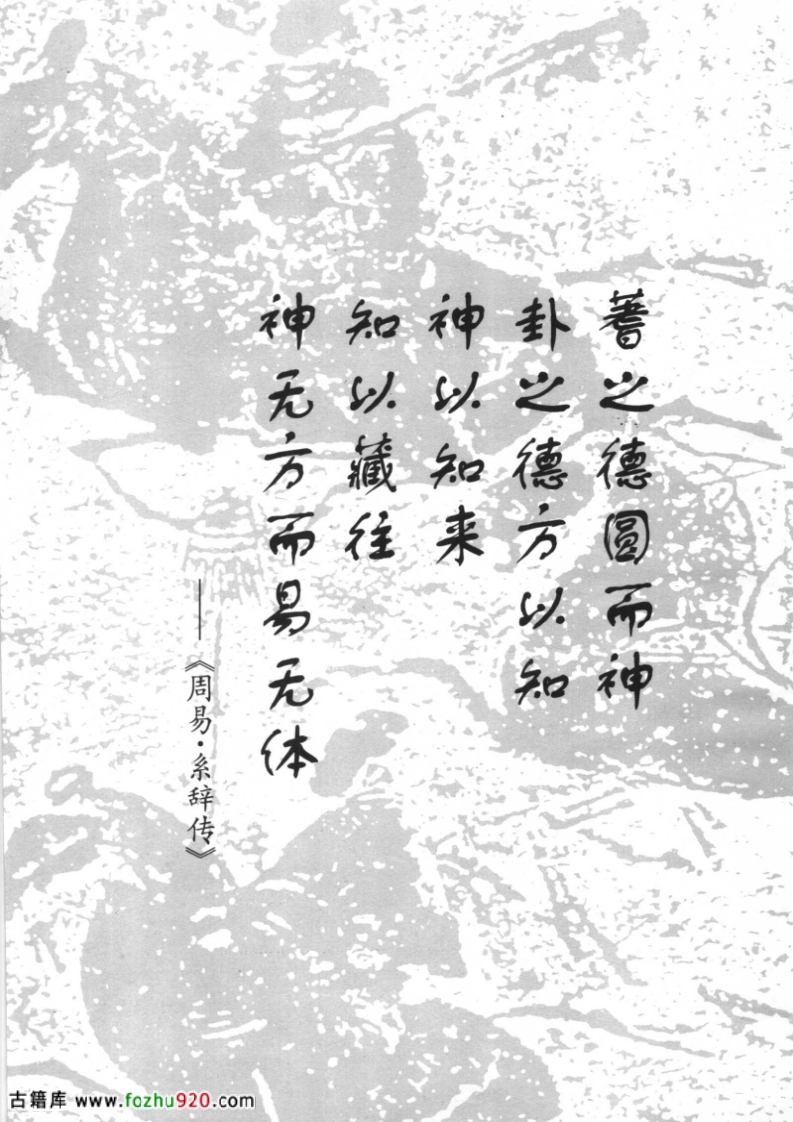 蓍之德圆而神
卦之德方以知
神以知来
知以藏往
神无方而易无体
——《周易·系辞传》
古籍库 www.fozhu920.com